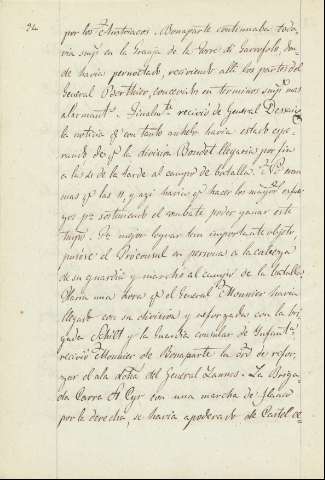 34
por los Austriacos. Bonaparte continuaba toda-
via en la Granja de la Torre di Garrofolo, don-
de havia pernoctado, reciviendo alli los partes del
General Berthier, concevidos en terminos mas
alarmants. Finalmte recivió de General Dessaix
la noticia q con tanto anhelo havia estado espe-
rando de q la division Boudet llegaria por fin
a las de la tarde al campo de batalla.
mas q las 11, y asi havia q hacer los mayors esfuer-
zos pa sosteniendo el combate poder ganar este
tiempo. Pa mejor lograr tan importante objeto,
pusose el Proconsul en persona a la cabeza
de su guardia y marchó al campo de la batalla.
Haria una hora q el General Monnier havia
llegado con su division y reforzado con la bri-
gada Schilt y la Guardia consular de Infanta
recivió Monnier de Bonaparte la ordn de refor-
zar el ala dcha del General Lannes. La Briga-
da Carra St Cyr con una marcha de flanco
por la derecha, se havia apoderado de Castel ce-